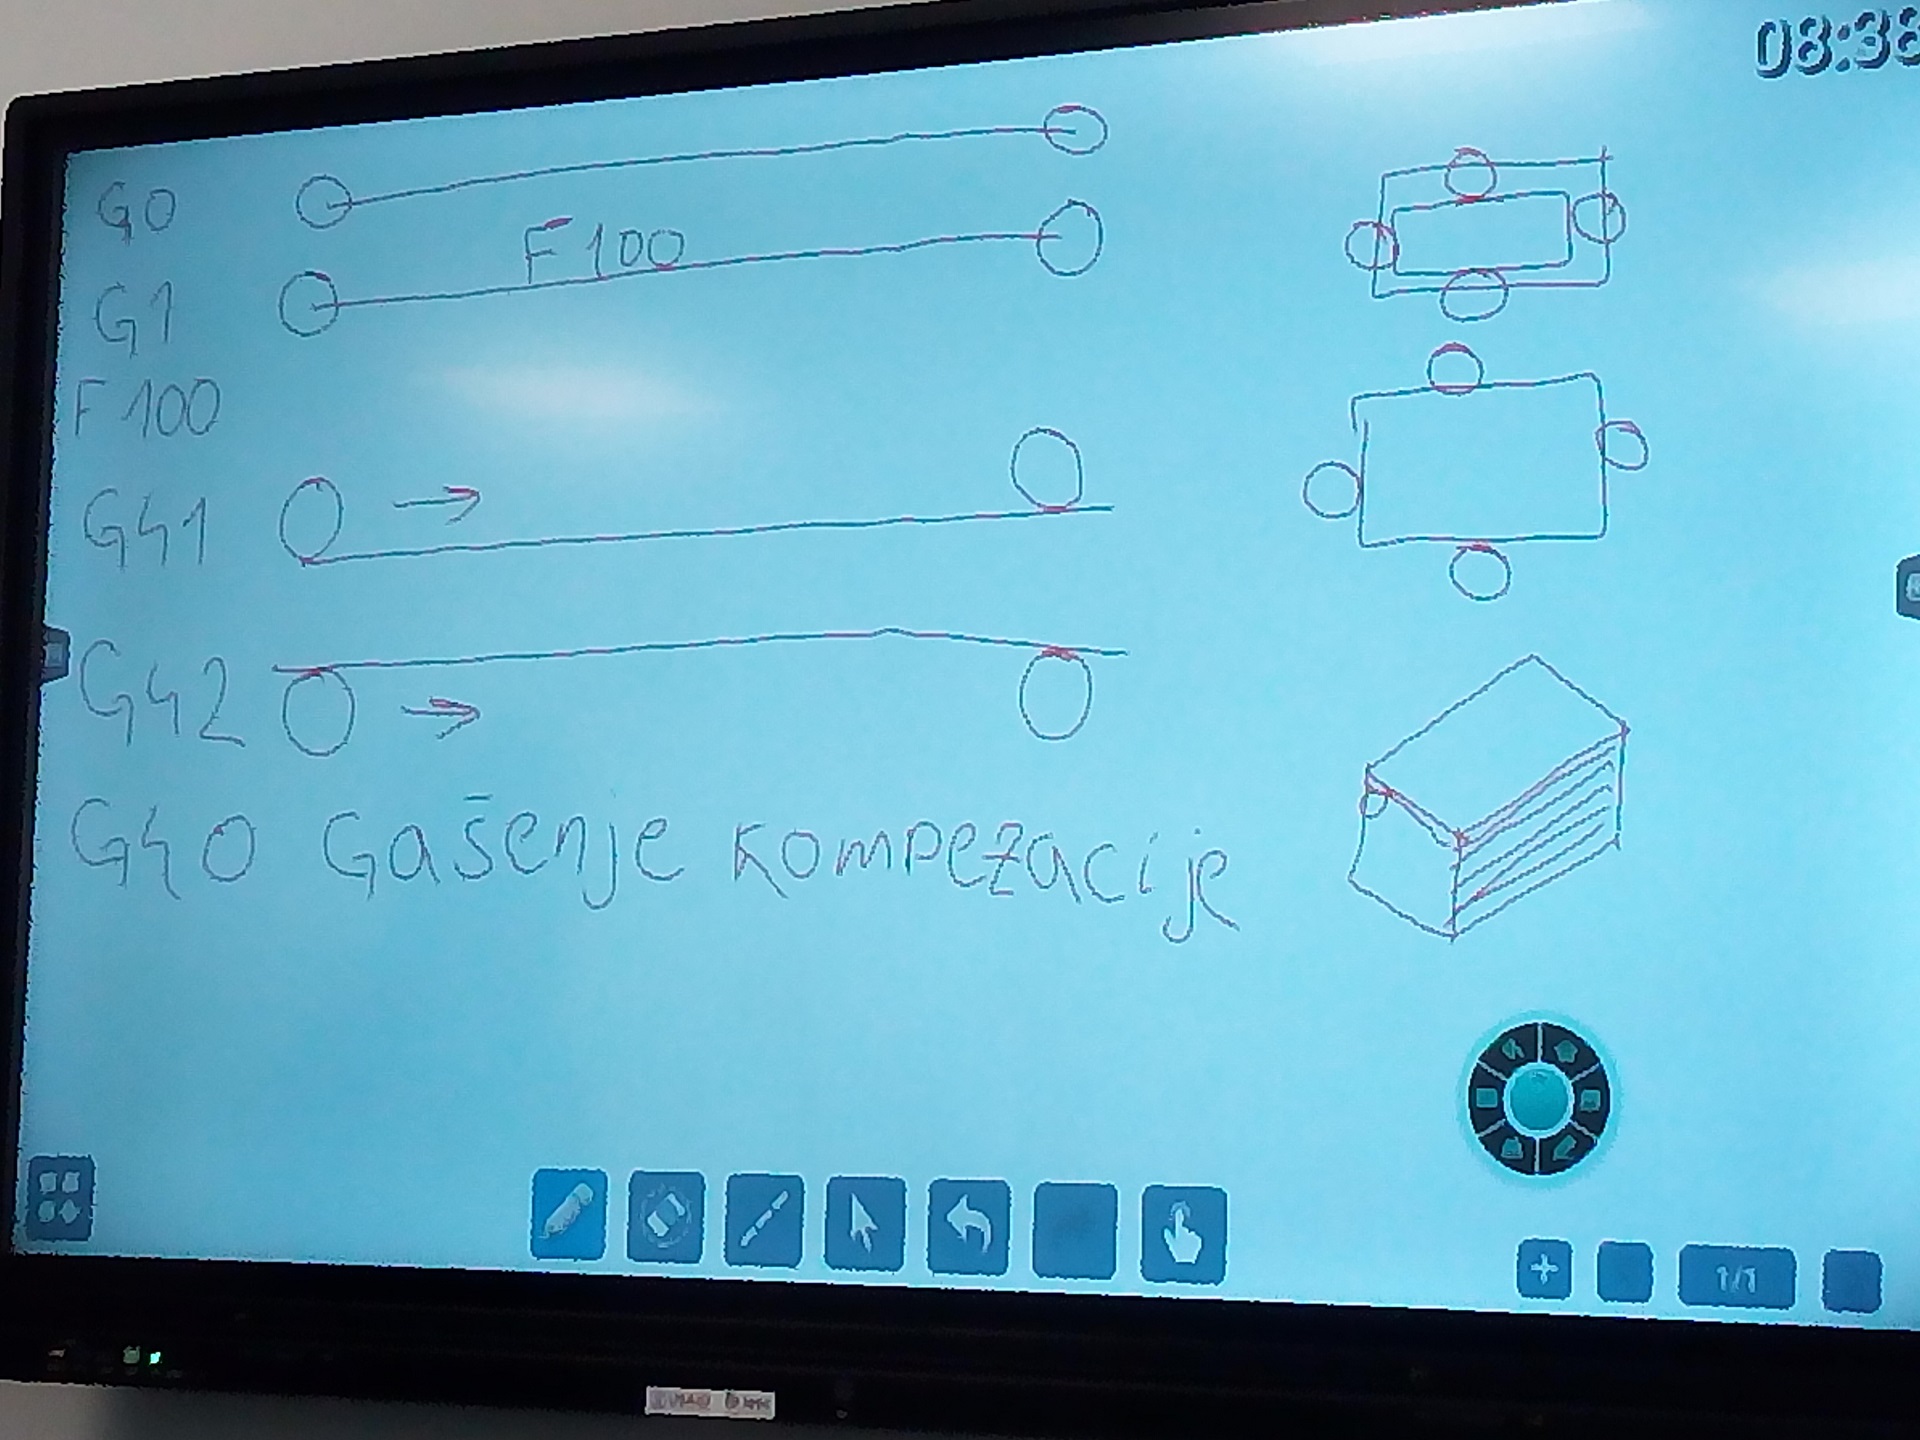 08:38
G0
F100
G1
F100
G41
G42
G40 Gašenje kompezacije
1/1